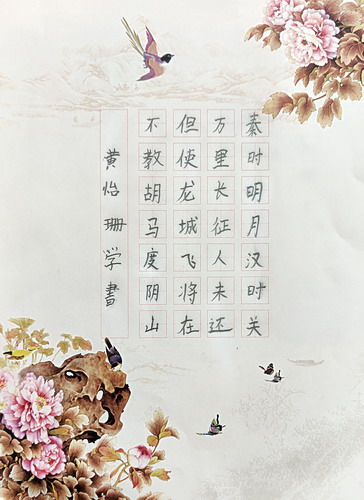 秦时明月汉时关
万里长征人未还
但使龙城飞将在
不教胡马度阴山
黄怡珊学書